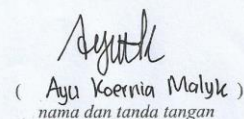 ( Ayu Koernia Malyk )
nama dan tanda tangan